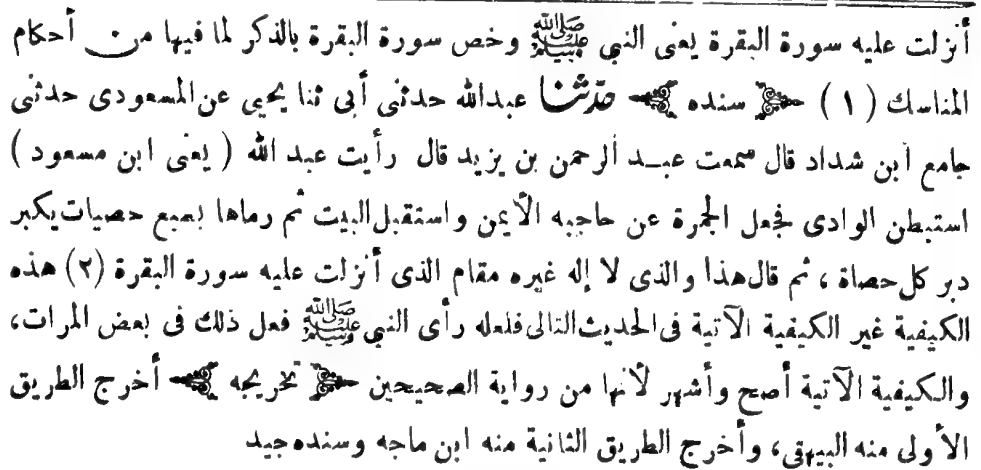 أنزلت عليه سورة البقرة يعنى النبى ﷺ وخص سورة البقرة بالذكر لما فيها من أحكام
المناسك (١) سنده حدثنا عبدالله حدثنى أبى ثنا يحيى عن المسعودى حدثنى
جامع أبن شداد قال سمعت عبد الرحمن بن يزيد قال رأيت عبد الله ( يعنى ابن مسعود )
استبطن الوادى فجعل الجمرة عن حاجبه الأيمن واستقبل البيت ثم رماها بسبع حصيات يكبر
دبر كل حصاة ، ثم قال هذا والذى لا إله غيره مقام الذى أنزلت عليه سورة البقرة (٢) هذه
الكيفية غير الكيفية الآتية فى الحديث التالى فلعله رأى النبى ﷺ فعل ذلك فى بعض المرات،
والكيفية الآتية أصح وأشهر لأنها من رواية الصحيحين تخريجه أخرج الطريق
الأولى منه البيهقى، وأخرج الطريق الثانية منه ابن ماجه وسنده جيد